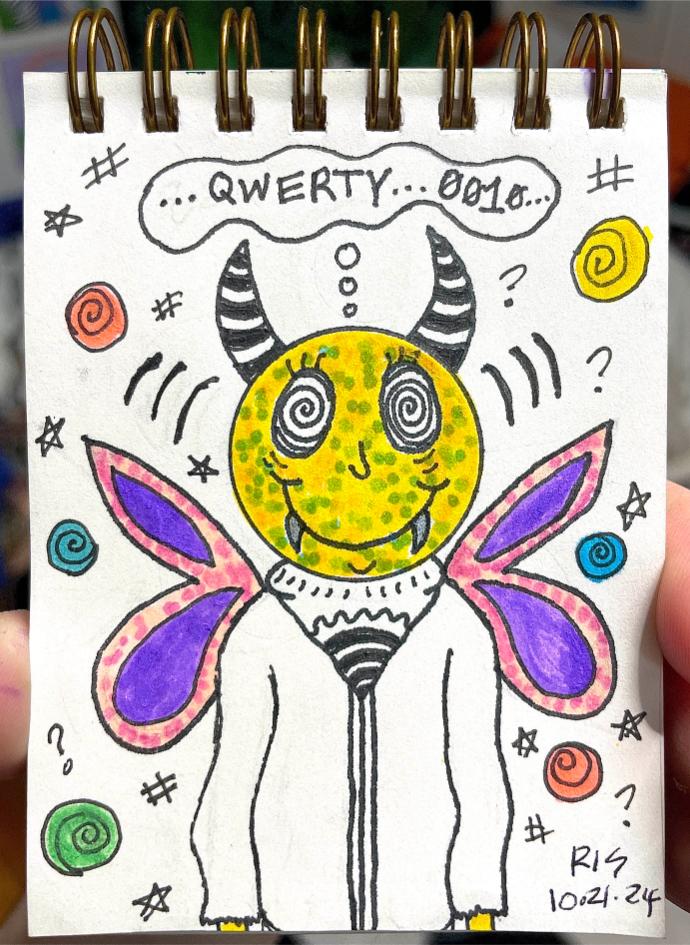 ...QWERTY...0010...
#
#
#
?
?
?
#
?
#
RIS
10.21.24